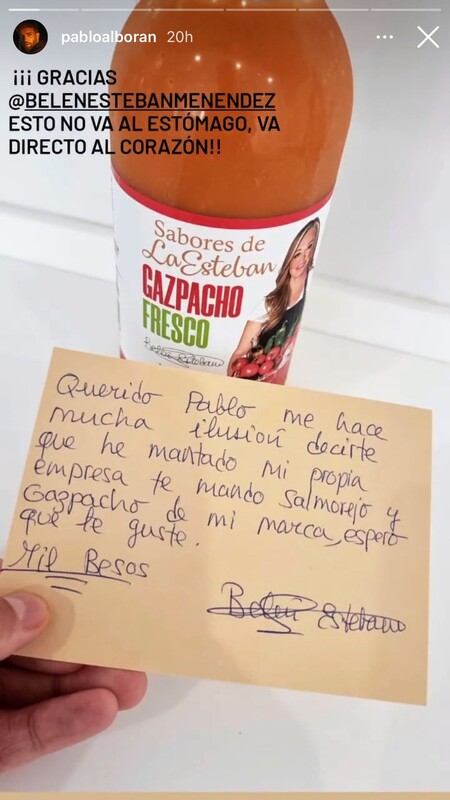 pabloalboran 20h
¡¡¡ GRACIAS
@BELENESTEBANMENENDEZ
ESTO NO VA AL ESTÓMAGO, VA
DIRECTO AL CORAZÓN!!
Sabores de
LaEsteban
GAZPACHO
FRESCO
Belén Esteban
Querido Pablo me hace
mucha ilusion decirte
que he mantado mi propia
empresa te mando Salmorejo y
Gazpacho de mi marca, espero
que te guste.
Mil Besos
Belén Esteban